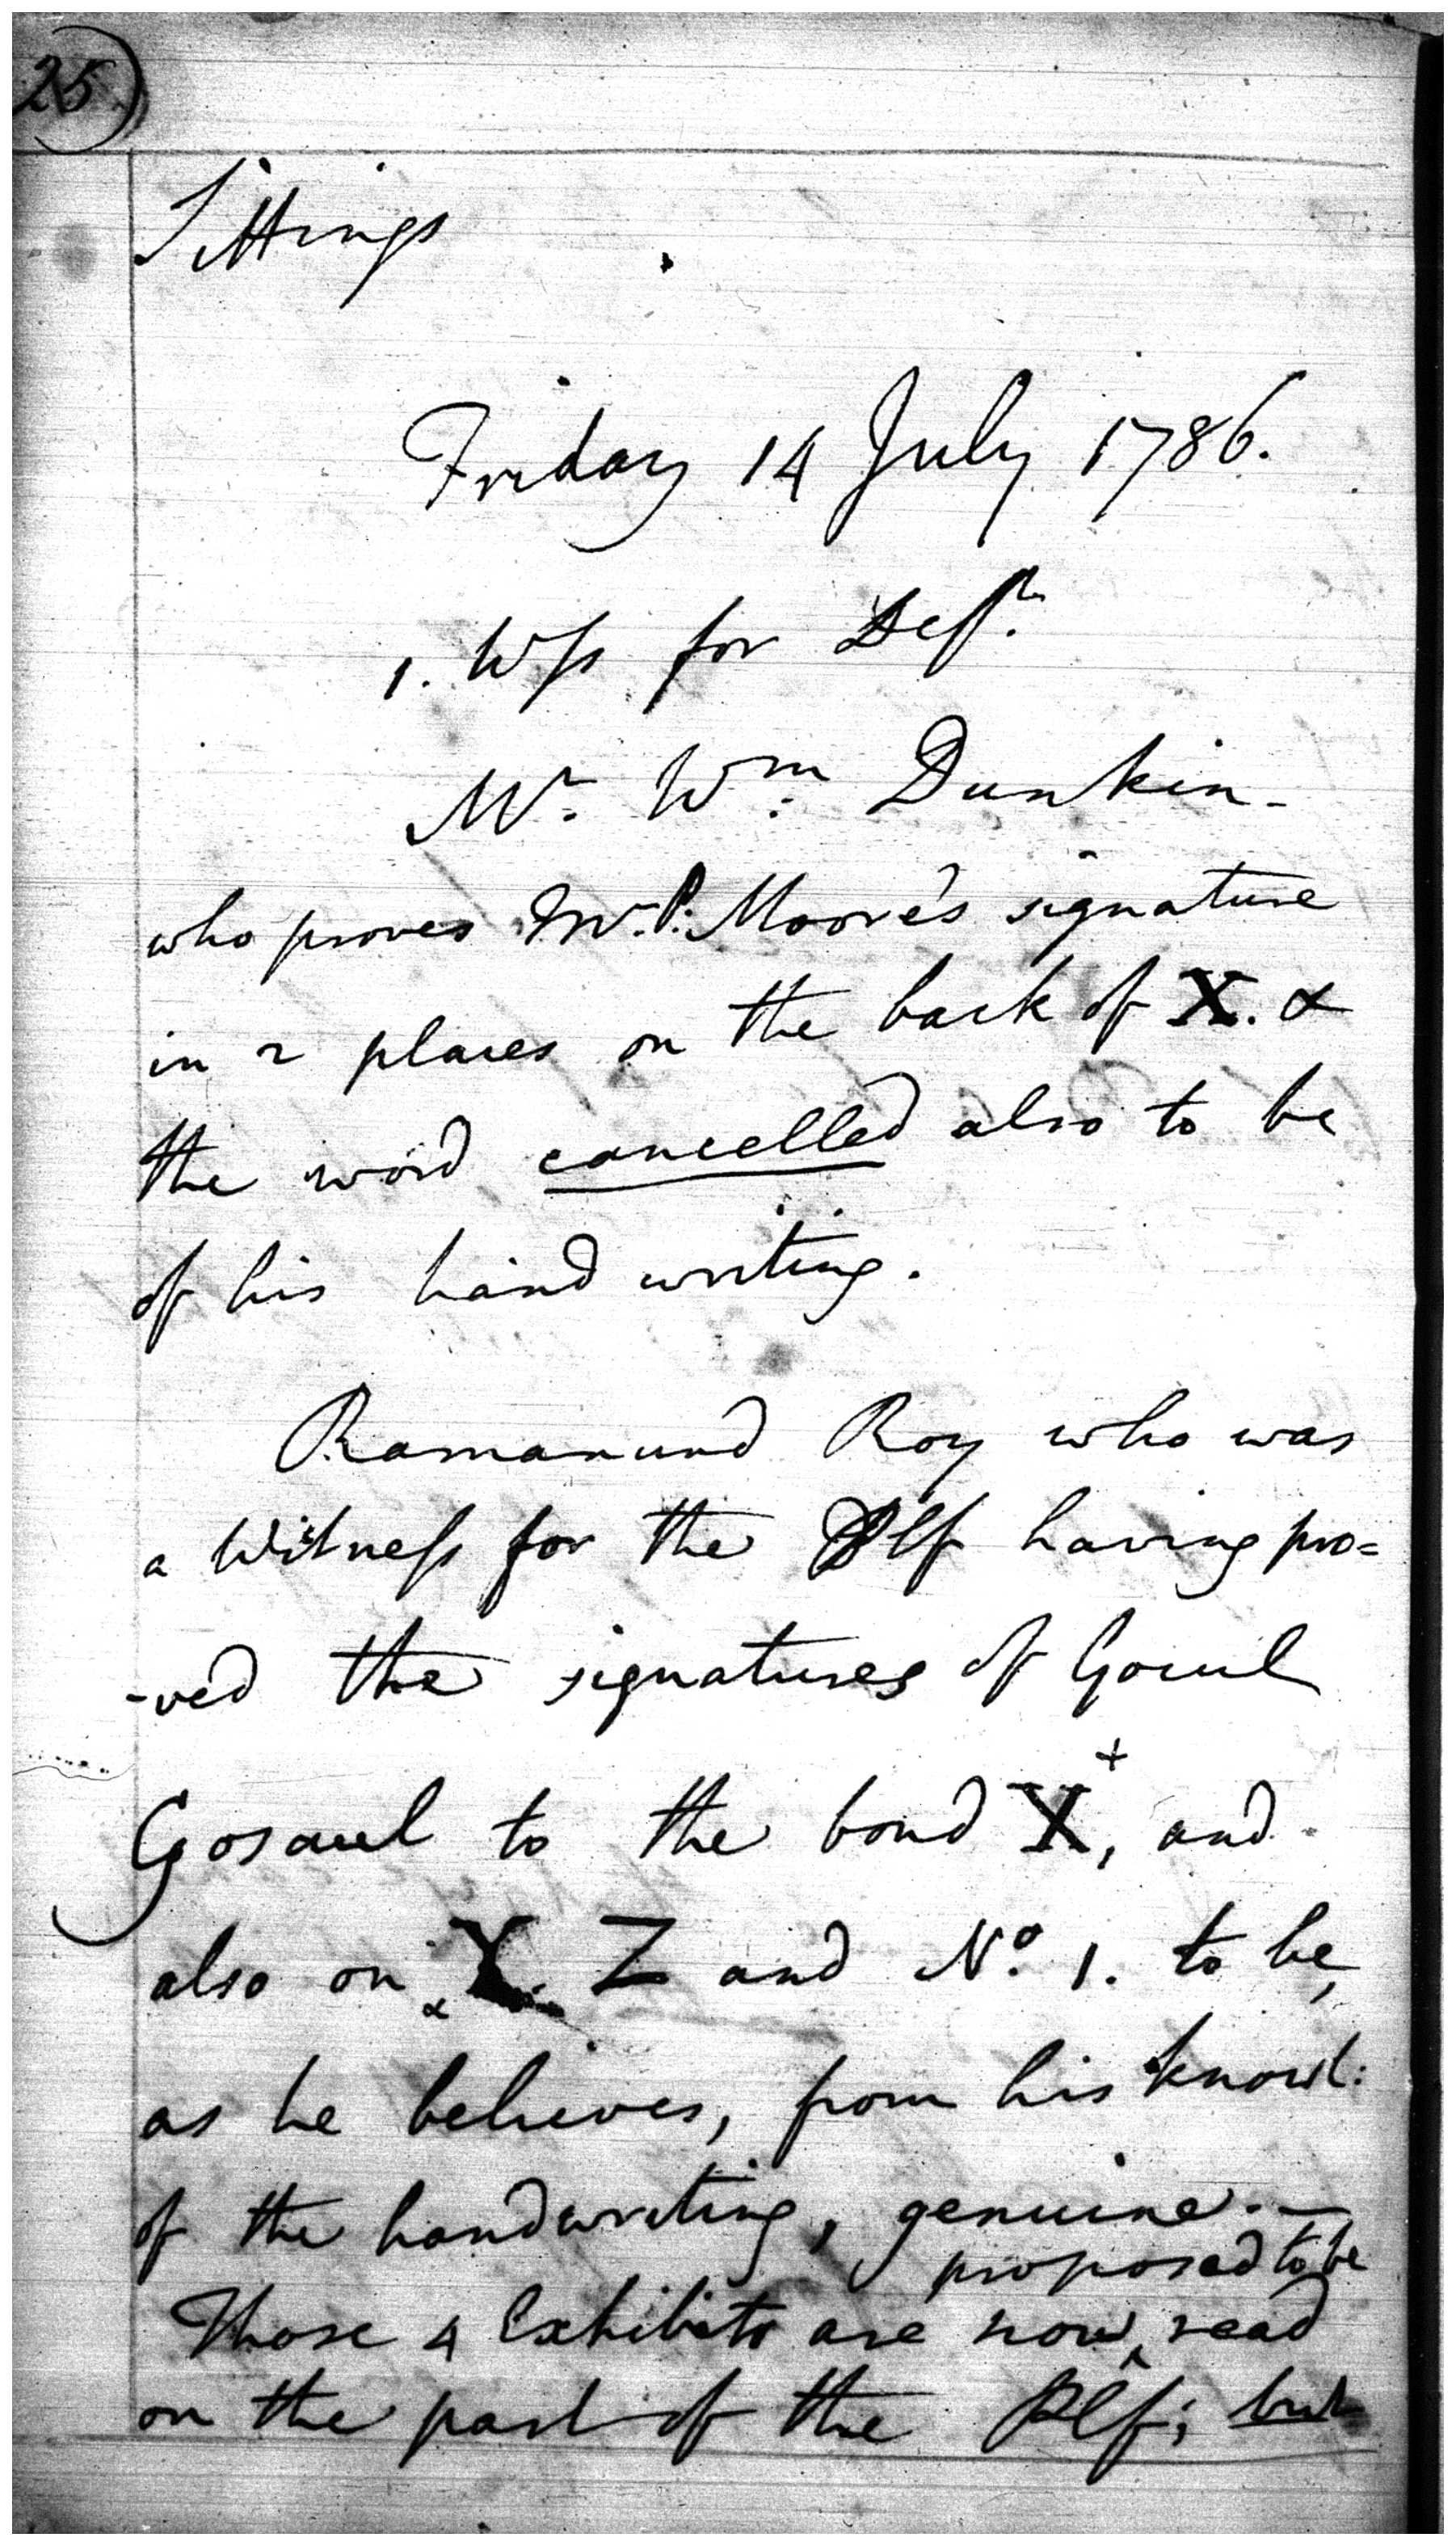 25.
Sittings
Friday 14 July 1786.
1. Wſs for Deft.
Mr. Wm. Dunkin-
who proves Mr. P. Moore's signature
in 2 places on the back of X. &
the word cancelled also to be
of his hand writing.
Ramanund Roy who was
a Witneſs for the Plf having pro=
-ved the signatures of Gocul
Gosaul to the bond X+, and
also on Y. Z and No. 1. to be,
as he believes, from his knowl:
of the handwriting, genuine.—
proposed to be
Those 4 Exhibits are now ^ read
on the part of the Plf; but